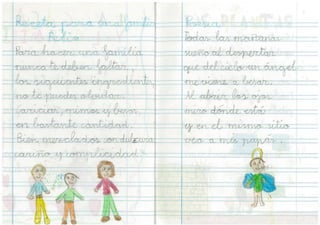 Receta para una familia
feliz
Para hacer una familia
nunca te deben faltar,
los siguientes ingredientes
no te puedes olvidar.
Caricias, mimos y besos,
en bastante cantidad.
Bien mezclados con dulzura
cariño y complicidad.
Poesía
Todas las mañanas
sueño al despertar
que del cielo un ángel
me viene a besar.
Al abrir los ojos
miro dónde está
y en el mismo sitio
veo a mis papás.